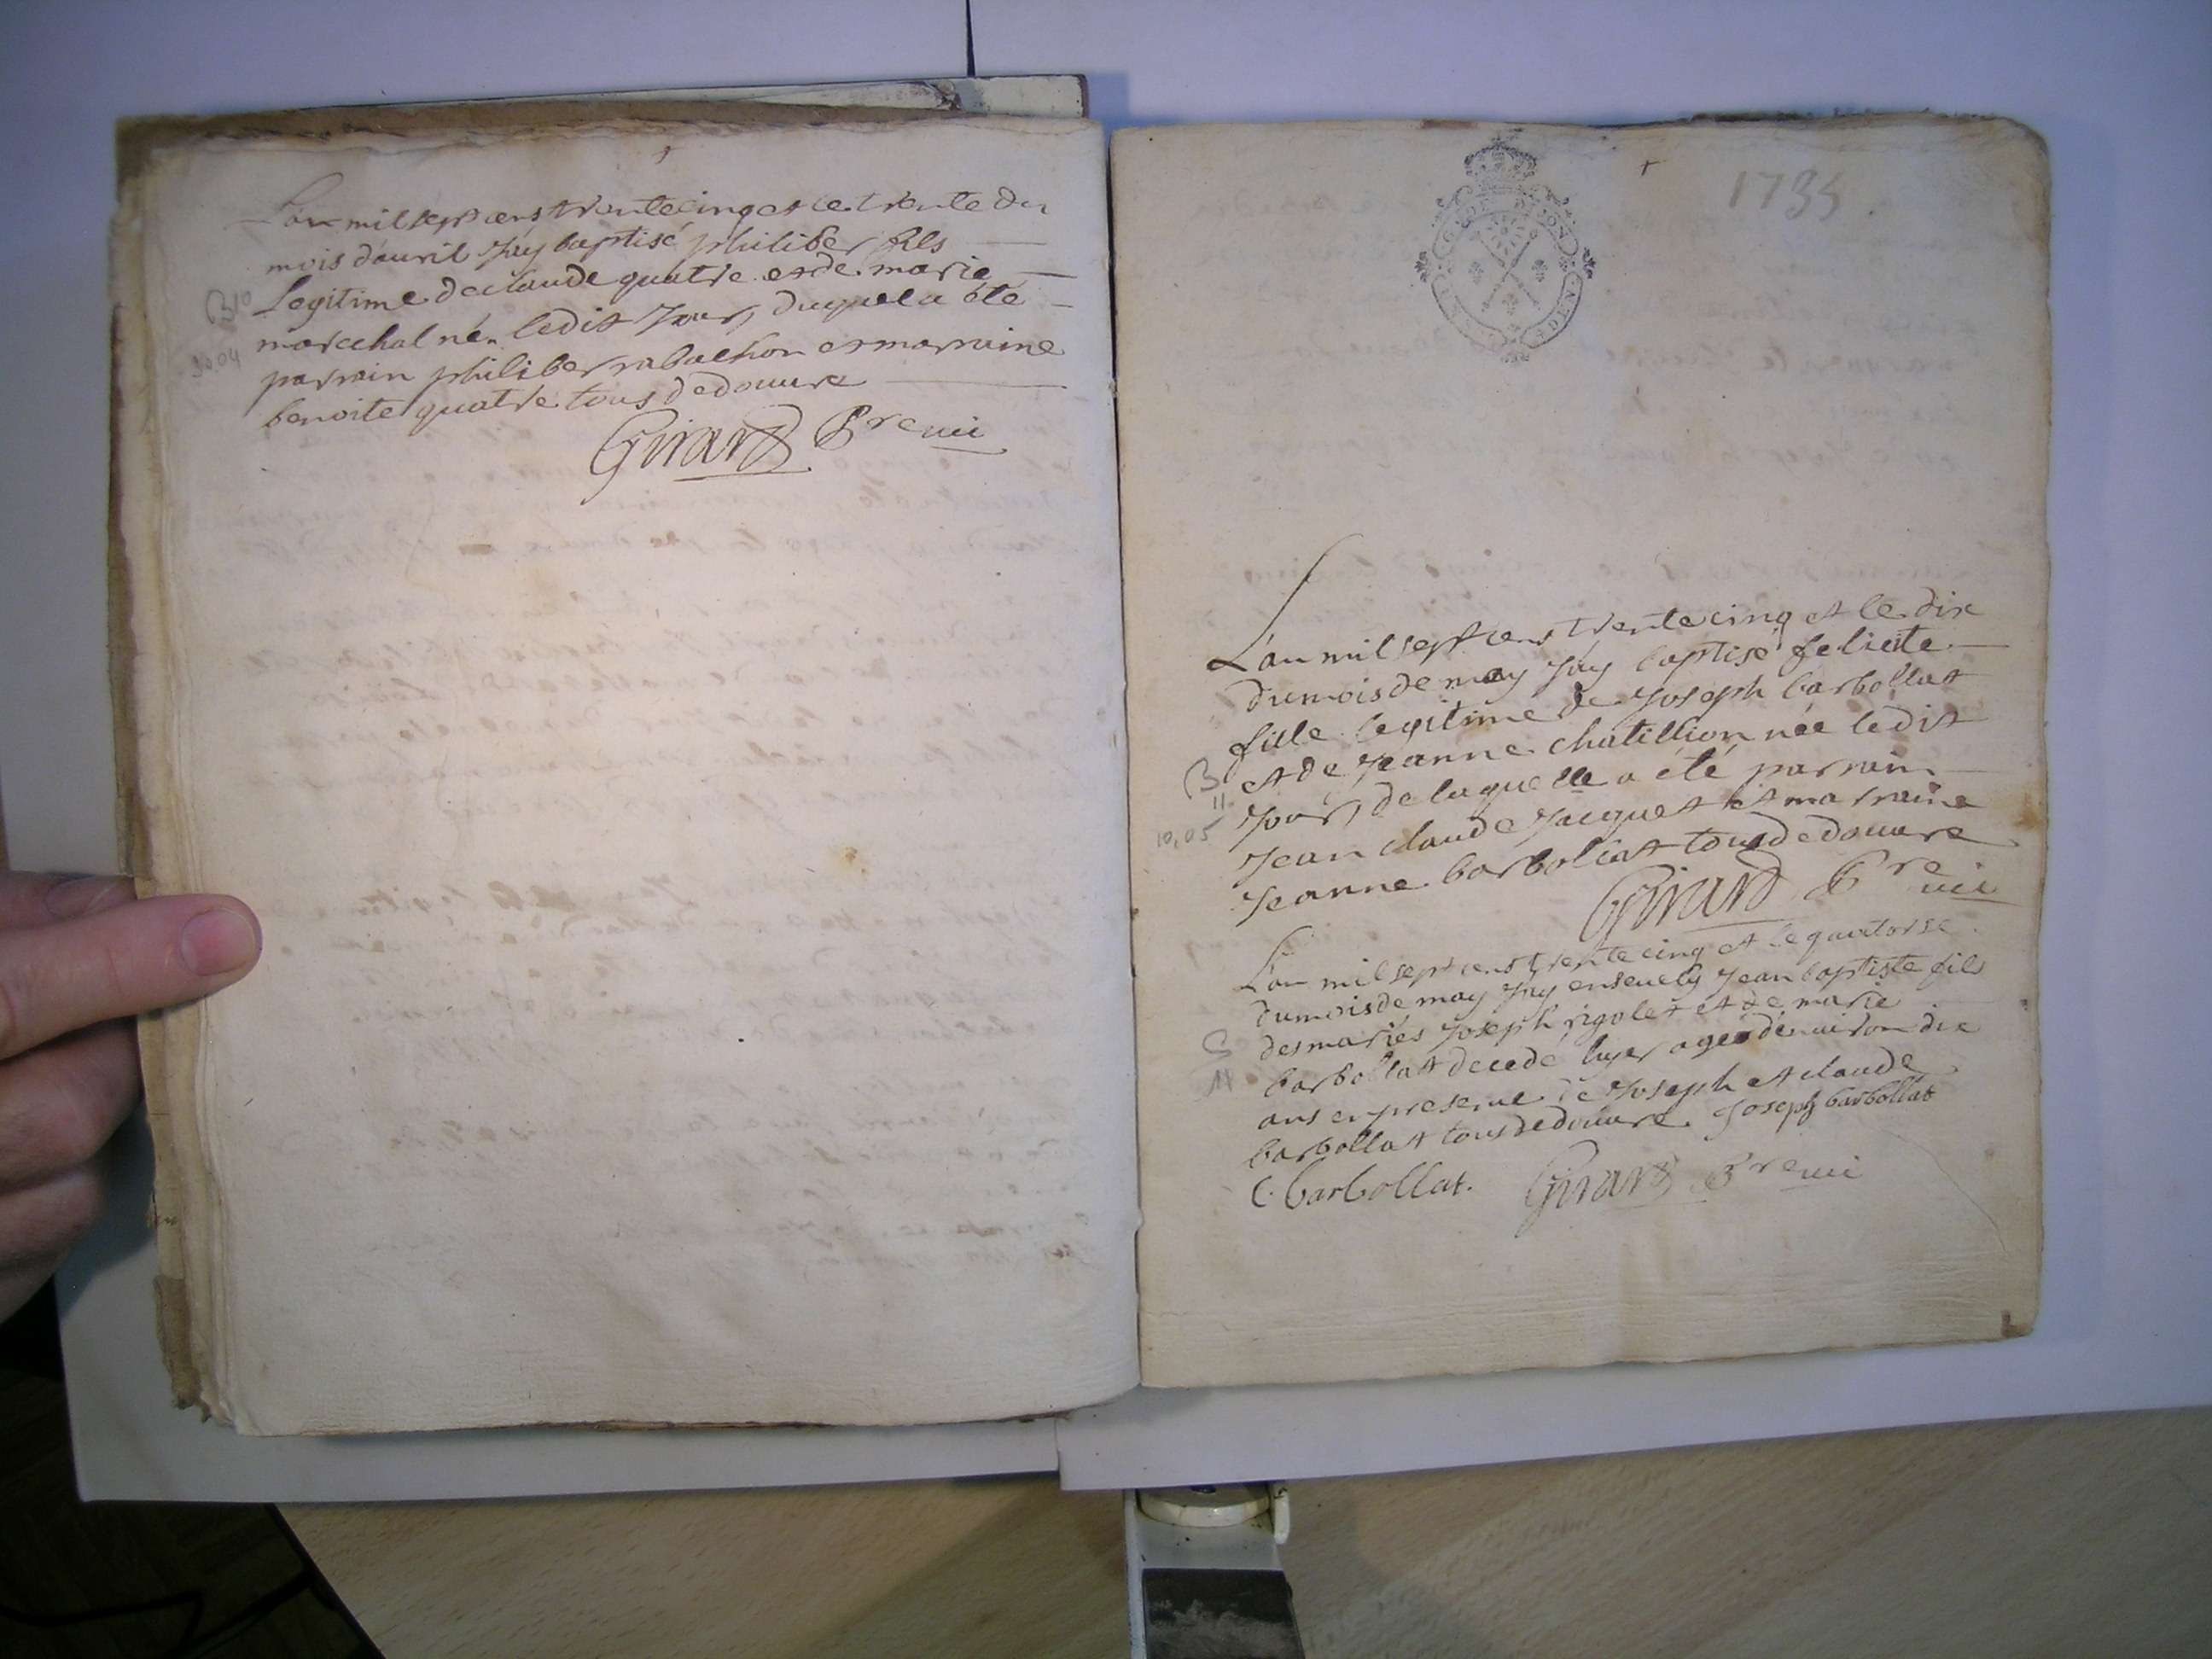 L'an mil sept cens trente cinq et le trente du
mois d'auril j'ay baptisé philiber fils
Legitime de claude quatre et de marie
marechal né ledit jour, duquel a été
parrain philiber rabachon et marraine
benoite quatre tous de douure
Girard Pre vic
B 10
30.04
1735.
L'an mil sept cens trente cinq et le dix
du mois de may j'ay baptisé felicite
fille legitime de joseph barbollat
et de jeanne chatillion née ledit
jour, de laquelle a été parrain
jean claude jacquet et marraine
jeanne barbollat tous de douure
Girard Pre vic
B
11
10.05
L'an mil sept cens trente cinq et le quatorse
du mois de may j'ay enseuely jean baptiste fils
des mariés joseph rigolet et de marie
barbollat decedé hyer agé d'enuiron dix
ans en presence de joseph et claude
barbollat tous de douure. Joseph barbollat
C. barbollat. Girard Pre vic
S